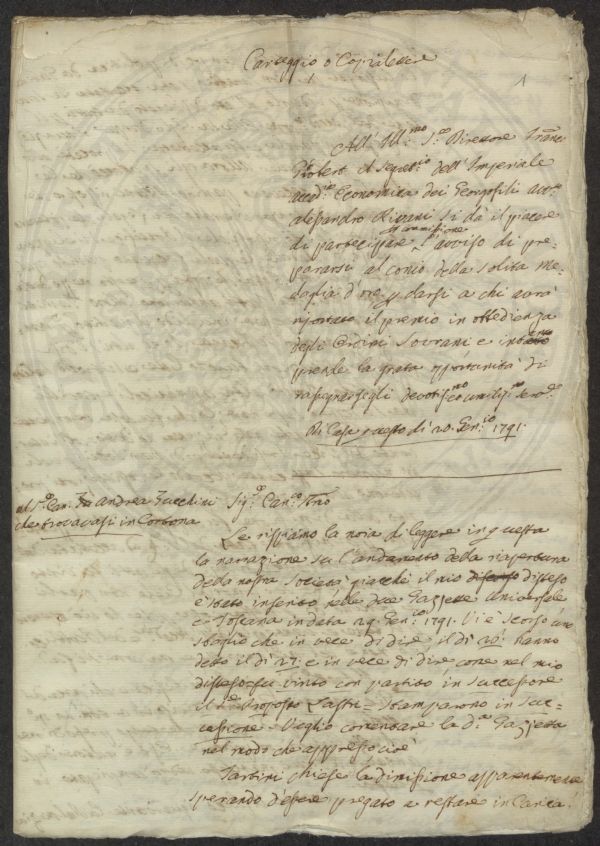 Carteggio o Copialettere
1
All' Ill.mo S.re Direttore Franc.
Siobert il Segret.io dell'Imperiale
Accad.ia Economica dei Georgofili Avv.to
Alessandro Rivani si dà il piacere
di partecipare commissione avviso di pre-
pararsi al conio della solita Me-
daglia d'oro p darsi a chi avrà
riportato il premio in obbedienza
degli Ordini Sovrani e
prende la grata opportunità di
rassegnarsegli devotis.mo umilis.mo serv.e
Di Casa questo dì 20. Gen.io 1791.
al S.re Can. Andrea Zucchini
che trovavasi in Cortona
Sig.re Can.co Pno
Le rispiamo la noia di leggere in questa
la narrazione su l'andamento della riapertura
della nostra Società giacchè il mio disteso
è stato inserito nelle due Gazzette Universale
e Toscana in data 29. Gen.io 1791. Vi è scorso uno
sbaglio che in vece di dire il dì 26: hanno
detto il dì 27: e in vece di dire come nel mio
disteso = fu vinto con partito in successore
il S.re Proposto Lastri = stamparono in suc-
cessione. Voglio correntare la d.a Gazzetta
nel modo che appresso cioè
Tartini chiese la dimissione apparentemente
sperando d'essere pregato a restare in Carica.